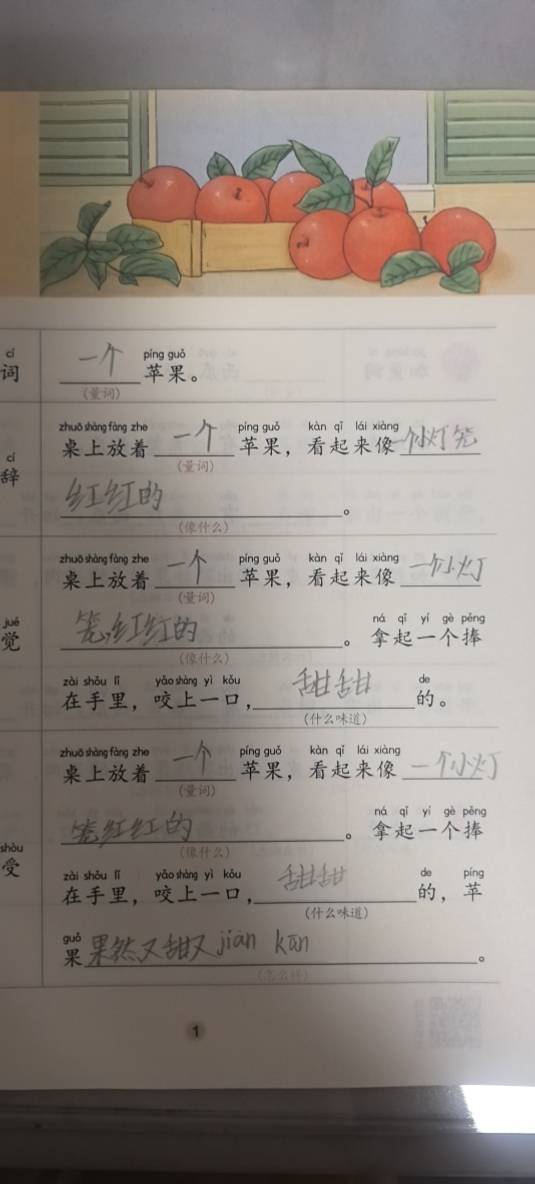 cí
词
一个
píng guǒ
苹果。
(量词)
cí
辞
zhuō shàng fàng zhe píng guǒ kàn qǐ lái xiàng
桌上放着一个苹果，看起来像一个小灯笼
(量词)
红红的。
(像什么)
jué
觉
zhuō shàng fàng zhe píng guǒ kàn qǐ lái xiàng
桌上放着一个苹果，看起来像一个小灯
(量词)
ná qǐ yí gè pěng
笼，红红的。拿起一个捧
(像什么)
zài shǒu lǐ yǎo shàng yì kǒu de
在手里，咬上一口，甜甜的。
(什么味道)
shòu
受
zhuō shàng fàng zhe píng guǒ kàn qǐ lái xiàng
桌上放着一个苹果，看起来像一个小灯
(量词)
ná qǐ yí gè pěng
笼红红的。拿起一个捧
(像什么)
zài shǒu lǐ yǎo shàng yì kǒu de píng
在手里，咬上一口，甜甜的，苹
(什么味道)
guǒ
果果然又甜又jiān kān。
(怎么样)
1